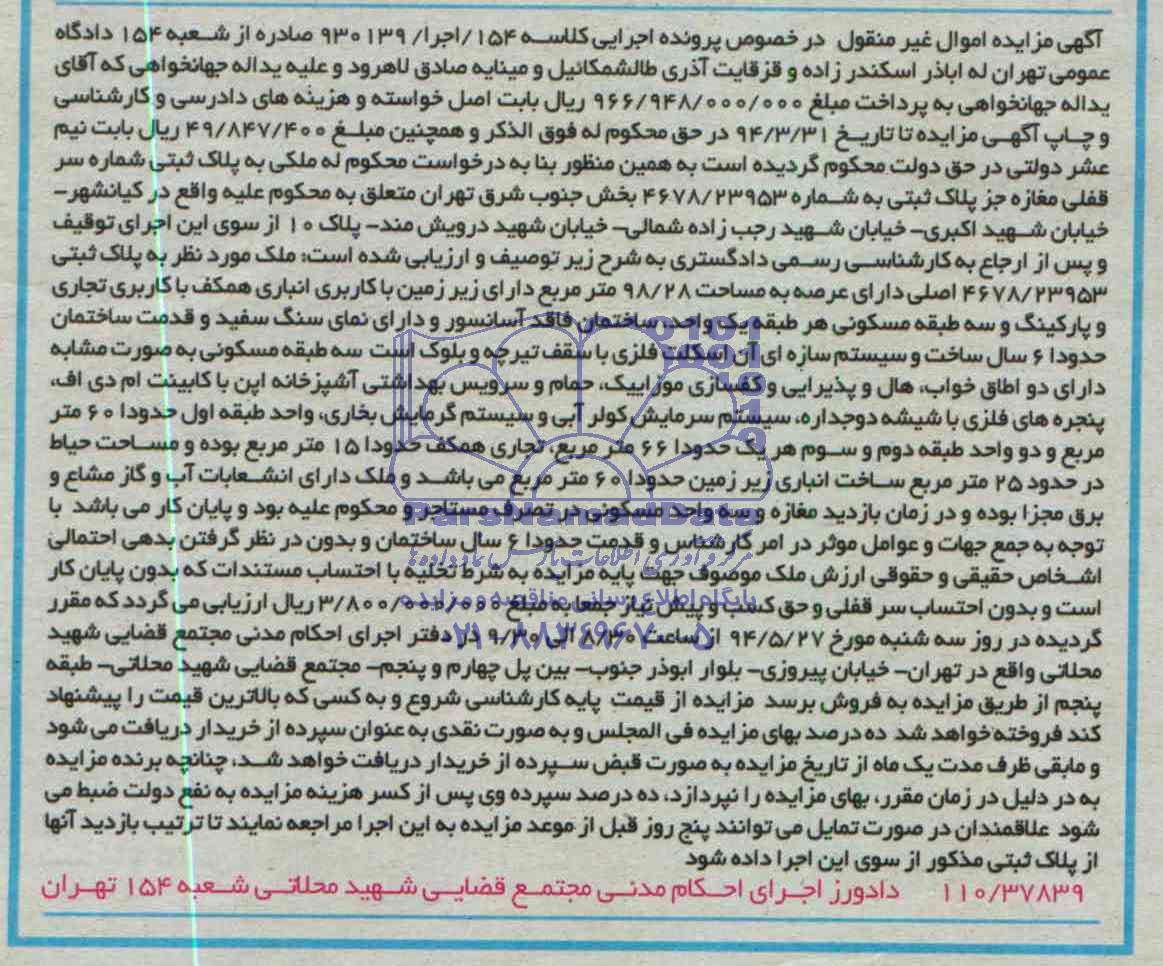 آگهی مزایده اموال غیر منقول در خصوص پرونده اجرایی کلاسه ۱۵۴/اجرا/ ۹۳۰۱۳۹ صادره از شعبه ۱۵۴ دادگاه
عمومی تهران له اباذر اسکندر زاده و قزقایت آذری طالشمکائیل و مینایه صادق لاهرود و علیه یداله جهانخواهی که آقای
یداله جهانخواهی به پرداخت مبلغ ۹۶۶/۹۴۸/۰۰۰/۰۰۰ ریال بابت اصل خواسته و هزینه های دادرسی و کارشناسی
و چاپ آگهی مزایده تا تاریخ ۹۴/۳/۳۱ در حق محکوم له فوق الذکر و همچنین مبلغ ۴۹/۸۴۷/۴۰۰ ریال بابت نیم
عشر دولتی در حق دولت محکوم گردیده است به همین منظور بنا به درخواست محکوم له ملکی به پلاک ثبتی شماره سر
قفلی مغازه جز پلاک ثبتی به شماره ۴۶۷۸/۲۳۹۵۳ بخش جنوب شرق تهران متعلق به محکوم علیه واقع در کیانشهر-
خیابان شهید اکبری- خیابان شهید رجب زاده شمالی- خیابان شهید درویش مند- پلاک ۱۰ از سوی این اجرای توقیف
و پس از ارجاع به کارشناسی رسمی دادگستری به شرح زیر توصیف و ارزیابی شده است: ملک مورد نظر به پلاک ثبتی
۴۶۷۸/۲۳۹۵۳ اصلی دارای عرصه به مساحت ۹۸/۲۸ متر مربع دارای زیر زمین با کاربری انباری همکف با کاربری تجاری
و پارکینگ و سه طبقه مسکونی هر طبقه یک واحد، ساختمان فاقد آسانسور و دارای نمای سنگ سفید و قدمت ساختمان
حدودا ۶ سال ساخت و سیستم سازه ای آن اسکلت فلزی با سقف تیرچه و بلوک است سه طبقه مسکونی به صورت مشابه
دارای دو اطاق خواب، هال و پذیرایی و کفسازی موزاییک، حمام و سرویس بهداشتی آشپزخانه اپن با کابینت ام دی اف،
پنجره های فلزی با شیشه دوجداره، سیستم سرمایش کولر آبی و سیستم گرمایش بخاری، واحد طبقه اول حدودا ۶۰ متر
مربع و دو واحد طبقه دوم و سوم هر یک حدودا ۶۶ متر مربع، تجاری همکف حدودا ۱۵ متر مربع بوده و مساحت حیاط
در حدود ۲۵ متر مربع ساخت انباری زیر زمین حدودا ۶۰ متر مربع می باشد و ملک دارای انشعابات آب و گاز مشاع و
برق مجزا بوده و در زمان بازدید مغازه و سه واحد مسکونی در تصرف مستاجر و محکوم علیه بود و پایان کار می باشد با
توجه به جمع جهات و عوامل موثر در امر کارشناس و قدمت حدودا ۶ سال ساختمان و بدون در نظر گرفتن بدهی احتمالی
اشخاص حقیقی و حقوقی ارزش ملک موصوف جهت پایه مزایده به شرط تخلیه با احتساب مستندات که بدون پایان کار
است و بدون احتساب سر قفلی و حق کسب و پیش نیاز جمعا به مبلغ ۳/۸۰۰/۰۰۰/۰۰۰ ریال ارزیابی می گردد که مقرر
گردیده در روز سه شنبه مورخ ۹۴/۵/۲۷ از ساعت ۸/۳۰ الی ۹/۳۰ در دفتر اجرای احکام مدنی مجتمع قضایی شهید
محلاتی واقع در تهران- خیابان پیروزی- بلوار ابوذر جنوب- بین پل چهارم و پنجم- مجتمع قضایی شهید محلاتی- طبقه
پنجم از طریق مزایده به فروش برسد مزایده از قیمت پایه کارشناسی شروع و به کسی که بالاترین قیمت را پیشنهاد
کند فروخته خواهد شد ده درصد بهای مزایده فی المجلس و به صورت نقدی به عنوان سپرده از خریدار دریافت می شود
و مابقی ظرف مدت یک ماه از تاریخ مزایده به صورت قبض سپرده از خریدار دریافت خواهد شد، چنانچه برنده مزایده
به در دلیل در زمان مقرر، بهای مزایده را نپردازد، ده درصد سپرده وی پس از کسر هزینه مزایده به نفع دولت ضبط می
شود علاقمندان در صورت تمایل می توانند پنج روز قبل از موعد مزایده به این اجرا مراجعه نمایند تا ترتیب بازدید آنها
از پلاک ثبتی مذکور از سوی این اجرا داده شود
۱۱۰/۳۷۸۳۹ دادورز اجرای احکام مدنی مجتمع قضایی شهید محلاتی شعبه ۱۵۴ تهران
ParsNamadData
پایگاه اطلاع رسانی مناقصه و مزایده
۰۲۱-۸۸۳۴۹۶۷۰-۵